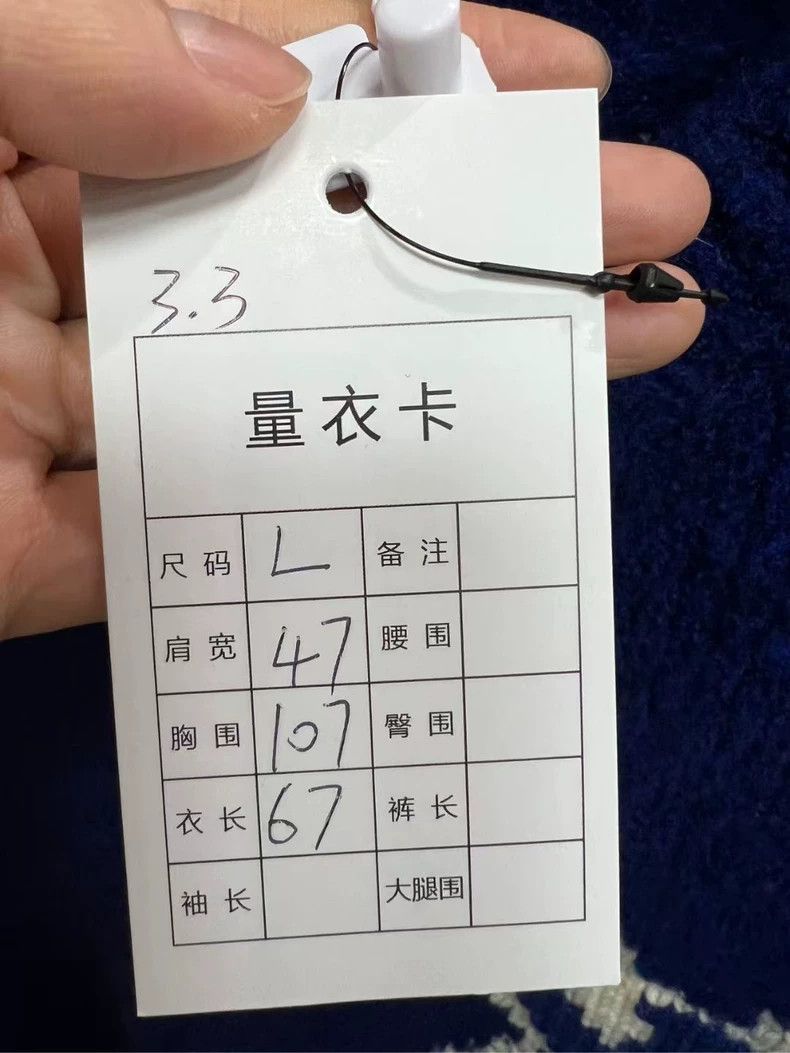 3.3
量衣卡
尺码 L 备注
肩宽 47 腰围
胸围 107 臀围
衣长 67 裤长
袖长 大腿围